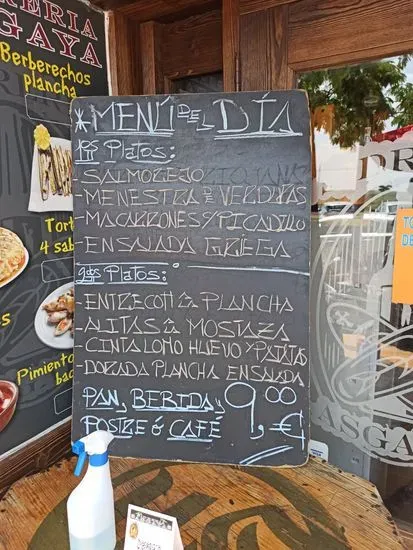 RERIA
GAYA
Berberechos
plancha
Tort
4 sab
Pimiento
bac
*MENÚ DEL DÍA
1os Platos:
-SALMOREJO
-MENESTRA DE VERDURAS
-MACARRONES C/ PICADILLO
-ENSALADA GRIEGA
2dos Platos:
-ENTRECOT A LA PLANCHA
-ALITAS A LA MOSTAZA
-CINTA LOMO HUEVO Y PATATAS
-DORADA PLANCHA ENSALADA
PAN, BEBIDA, Y
POSTRE ó CAFÉ
9,00€
DR
TO
DE
ASGA